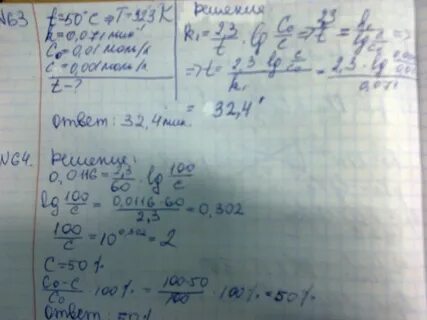 №63
t=50°C ⇒ T=323K
k=0,071 мин⁻¹
C₀=0,01 моль/л
C=0,001 моль/л
t-?
Решение
k₁=2,3/t · lg C₀/C ⇒ 2,3/t = k₁/lg C₀/C ⇒
⇒ t= 2,3 · lg C₀/C / k₁ = 2,3 · lg / 0,071
= 32,4
Ответ: 32,4 мин.
№64.
Решение:
0,0116=2,3/60 · lg 100/c
lg 100/c = 0,0116·60/2,3 =0,302
100/c =10^0,302 = 2
C=50%
C₀-C/C₀ · 100% = 100-50/100 · 100% =50%
Ответ: 50%